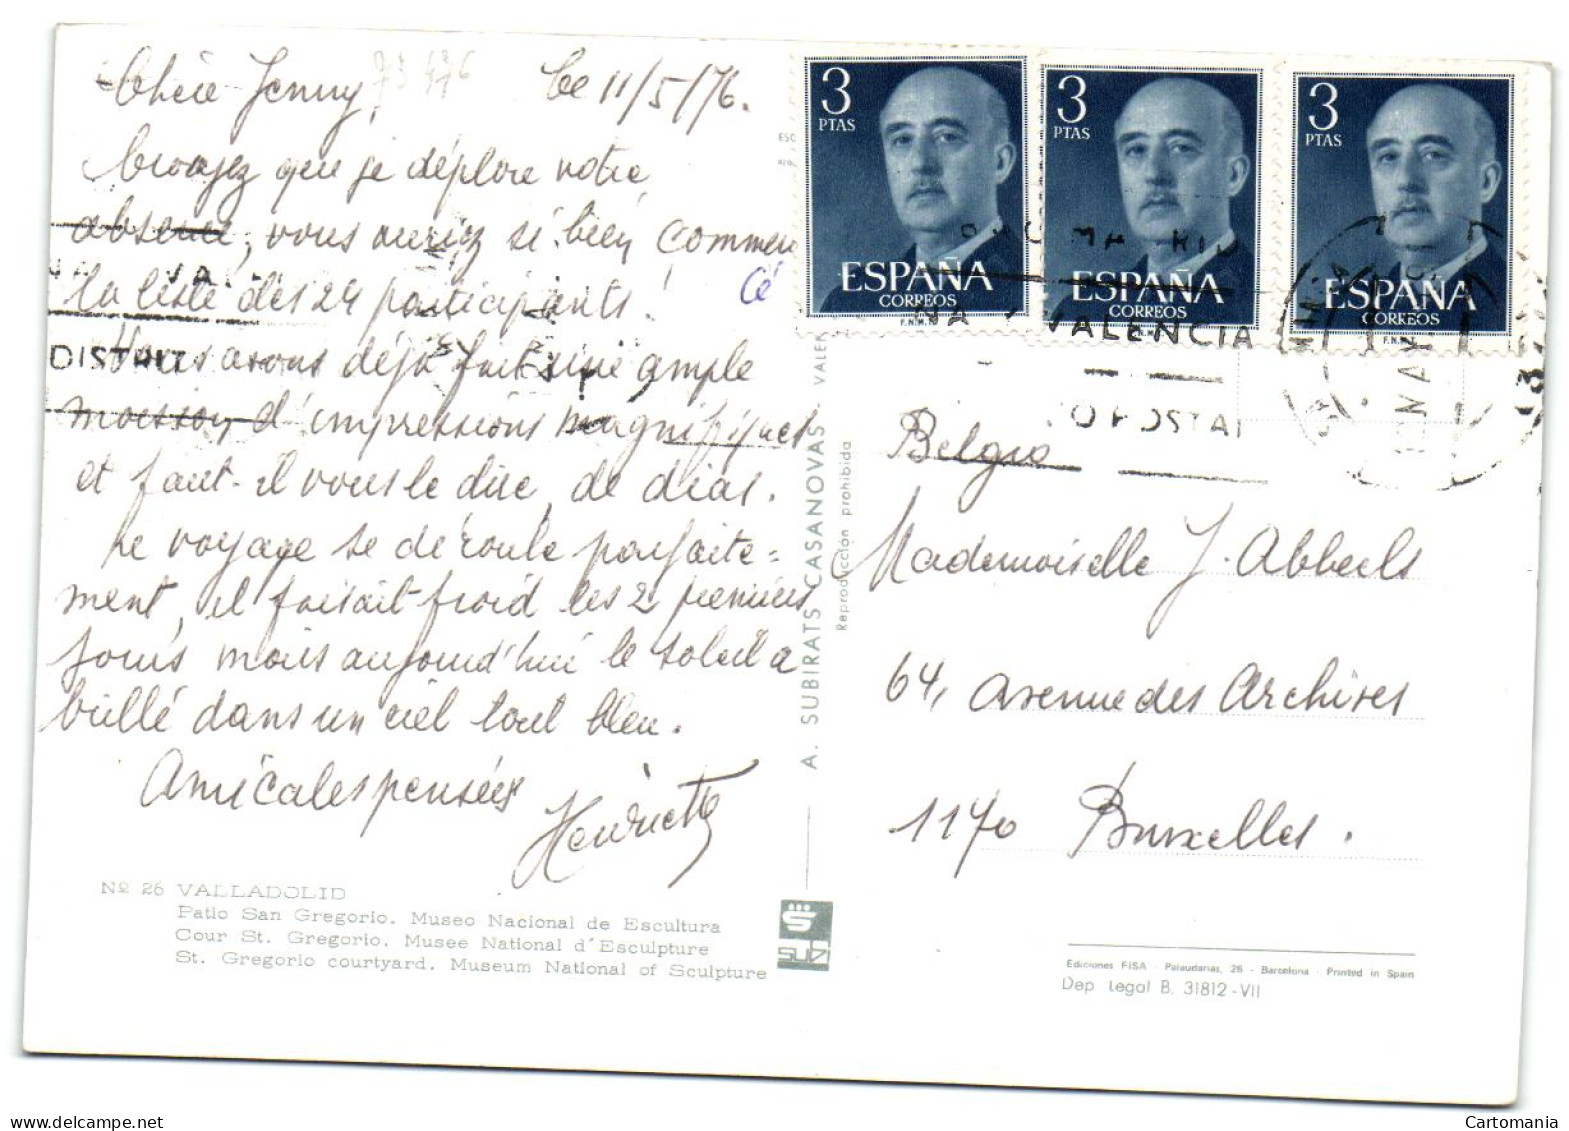 Chère Jenny, Le 11/5/76.
Croyez que je déplore votre
absence, vous auriez si bien
la liste des 24 participants!
Nous avons déjà fait une ample
moisson d'impressions magnifiques
et faut-il vous le dire, de dias.
Le voyage se déroule parfaite=
ment, il faisait froid les 2 premiers
jours mais aujourd'hui le soleil a
brillé dans un ciel tout bleu.
Amicales pensées
Henriette
Nº 26 VALLADOLID
Patio San Gregorio. Museo Nacional de Escultura
Cour St. Gregorio. Musee National d'Esculpture
St. Gregorio courtyard. Museum National of Sculpture
A. SUBIRATS CASANOVAS - VALEN
Reproducción prohibida
3
PTAS
ESPAÑA
CORREOS
F.N.M.T
3
PTAS
ESPAÑA
CORREOS
F.N.M
3
PTAS
ESPAÑA
CORREOS
F.N.M
VALENCIA
DISTRIT
Belgio
Mademoiselle J. Abbeels
64, avenue des Archives
1170 Bruxelles.
Ediciones FISA - Palaudarias, 26 - Barcelona - Printed in Spain
Dep legal B. 31812-VII
www.delcampe.net
Cartomania